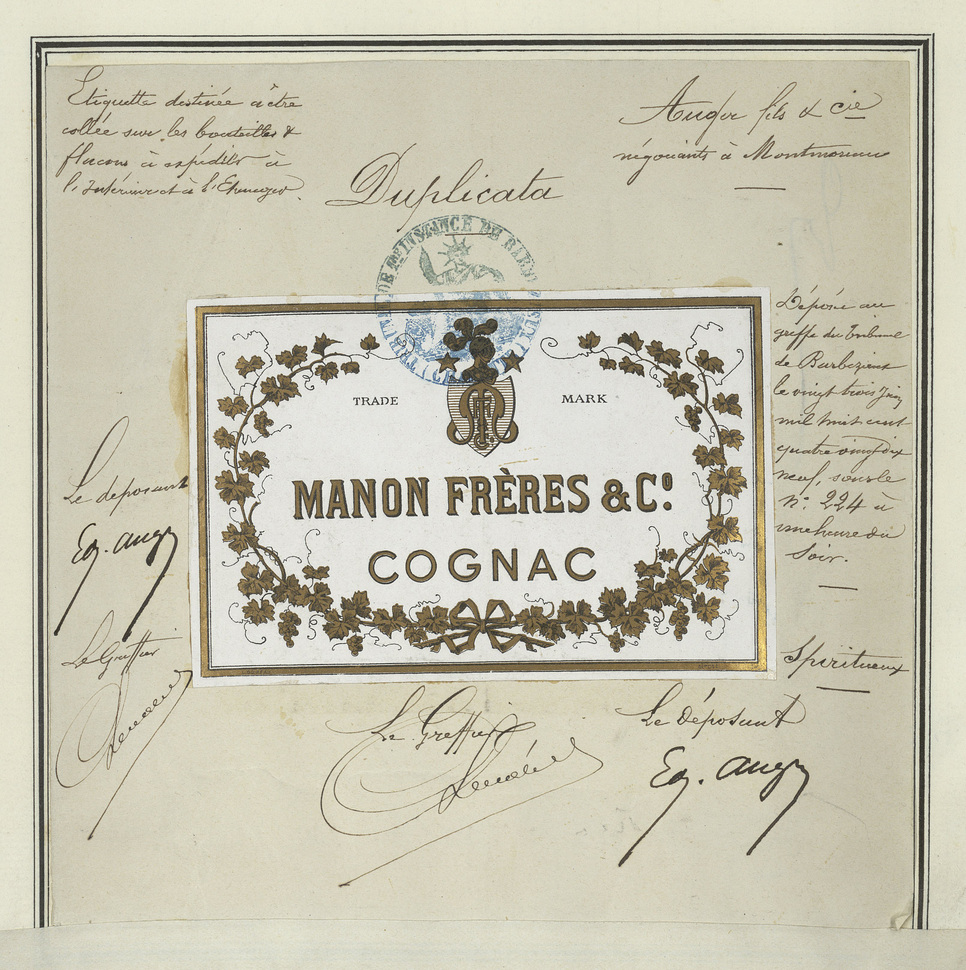 Etiquette destinée à être
collée sur les bouteilles &
flacons à expédier à
l'Intérieur et à l'Etranger.
Auger fils & Cie
négociants à Montmoreau
Duplicata
TRADE MARK
MANON FRÈRES & Cº.
COGNAC
Déposé au
greffe du Tribunal
de Barbezieux
le vingt trois Juin
mil huit cent
quatre vingt dix
neuf, sous le
Nº. 224 à
une heure du
Soir.
Spiritueux
Le déposant
Eg. Auger
Le Greffier
Le Greffier
Le déposant
Eg. Auger